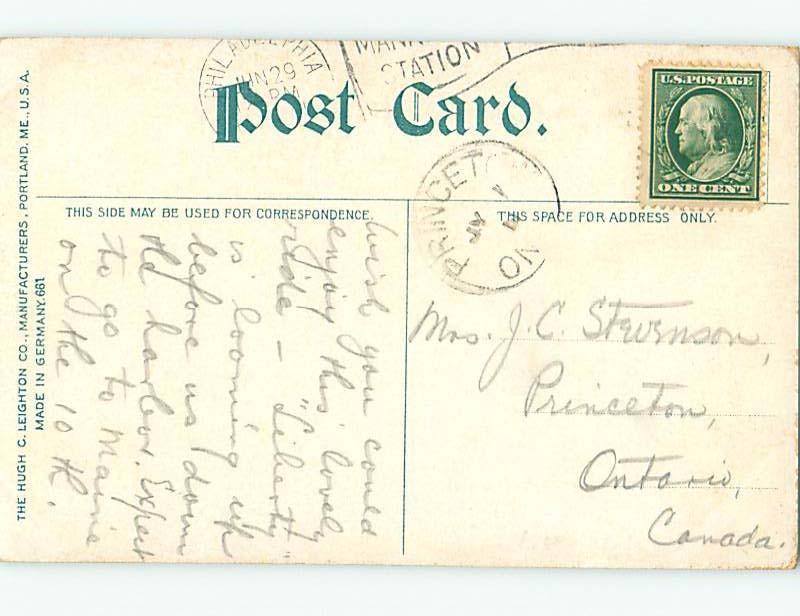 PHILADELPHIA
JUN 29
PM
STATION
U.S. POSTAGE
ONE CENT
Post Card.
PRINCETON
THIS SIDE MAY BE USED FOR CORRESPONDENCE.
THIS SPACE FOR ADDRESS ONLY.
THE HUGH C. LEIGHTON CO., MANUFACTURERS, PORTLAND, ME., U.S.A.
MADE IN GERMANY. 661
Wish you could
enjoy this lovely
ride – "Liberty"
is looming up
before us down
the harbor. Expect
to go to Maine
on the 10th.
Mrs. J. C. Stevenson,
Princeton,
Ontario,
Canada.